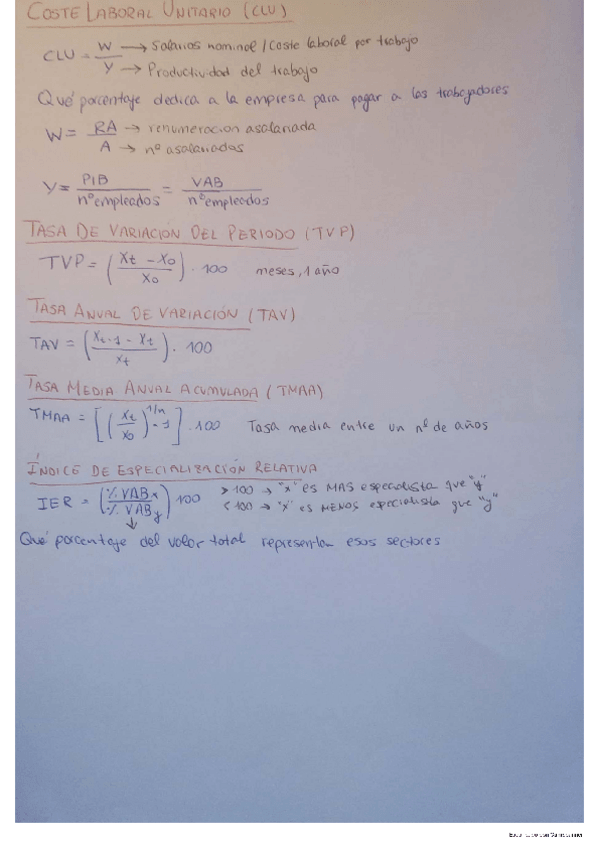 COSTE LABORAL UNITARIO (CLU)
CLU = W/Y → Salarios nominal / Coste laboral por trabajo
→ Productividad del trabajo
Qué porcentaje dedica a la empresa para pagar a los trabajadores
W = RA/A → renumeracion asalariada
→ nº asalariados
Y = PIB/nº empleados = VAB/nº empleados
TASA DE VARIACIÓN DEL PERIODO (TVP)
TVP = (Xt - X0 / X0) · 100 meses, 1 año
TASA ANUAL DE VARIACIÓN (TAV)
TAV = (Xt-1 - Xt / Xt) · 100
TASA MEDIA ANUAL ACUMULADA (TMAA)
TMAA = [(Xt/X0)^1/n - 1] · 100 Tasa media entre un nº de años
ÍNDICE DE ESPECIALIZACIÓN RELATIVA
IER = (% VABx / % VABy) 100 > 100 → "x" es MAS especialista que "y"
< 100 → "x" es MENOS especialista que "y"
Qué porcentaje del valor total representan esos sectores